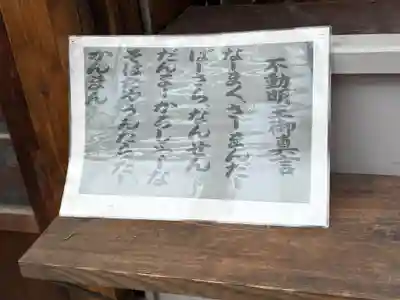 不動明王御真言
なーまくさーまんだ
ばーさらなんせん
だんまーかろしゃーな
そはたやうんたらたー
かんまん